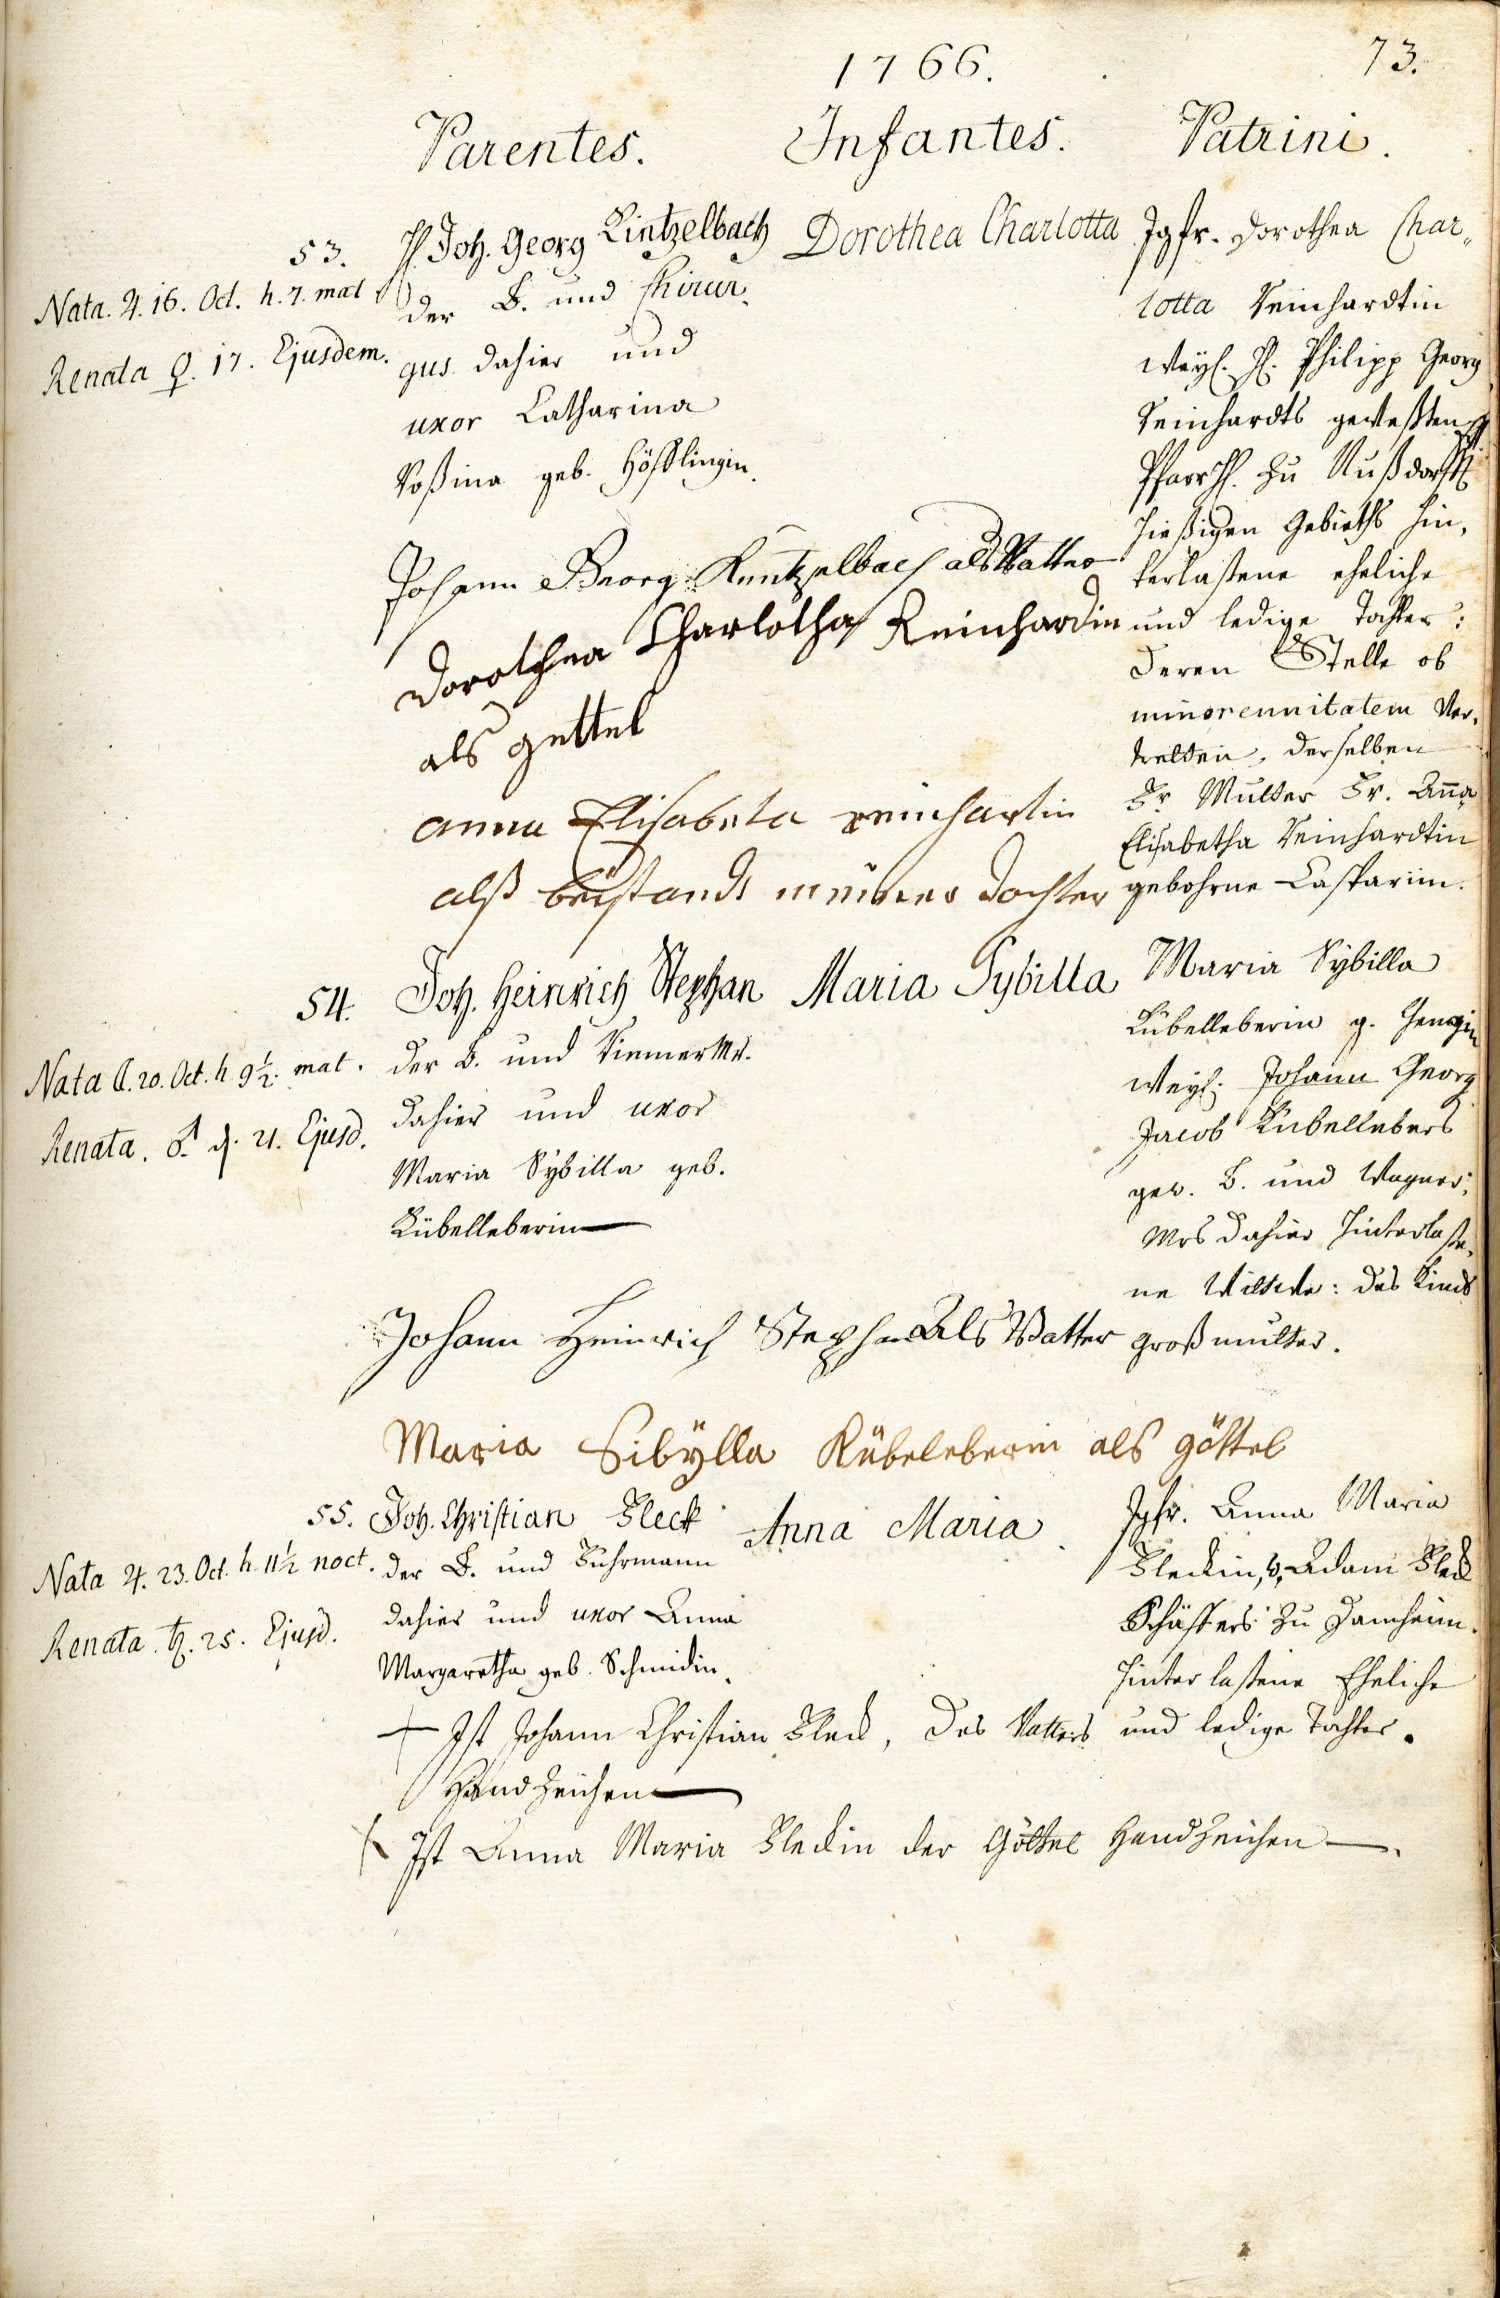 1766.
73.
Parentes.
Infantes.
Patrini.
53.
Nata. ♃. 16. Oct. h. 7. mat
Renata ♀. 17. Ejusdem.
H. Joh. Georg Kintzelbach
der B. und Chirur,
gus dahier und
uxor Catharina
Roßina geb. Höfflingin.
Dorothea Charlotta
Jgfr. Dorothea Char„
lotta Reinhardtin
weyl. H. Philipp Georg
Reinhardts geweßten
Pfarrh. zu Nußdorff
hießigen Gebieths hin,
terlaßene eheliche
und ledige Tochter:
deren Stelle ob
minorennitatem ver,
tretten, derselben
Fr Mutter Fr. Ana
Elisabetha Reinhardtin
gebohrne Casparin.
Johann Georg Kuntzelbach als Vatter
Dorothea Charlotha Reinhardin
als gettel
anna Elisabeta reinhartin
alß beistandt meiner Dochter
54.
Nata ☾. 20. Oct. h 9½. mat.
Renata. ♂. d. 21. Ejusd.
Joh. Heinrich Stephan
der B. und Riemer Mr.
dahier und uxor
Maria Sybilla geb.
Kübelleberin
Maria Sybilla
Maria Sybilla
Kübelleberin g.
weyl. Johann Georg
Jacob Kübellebers
gew. B. und Wagner,
Mrs dahier hinterlaße,
ne Wittwe: des Kinds
großmutter.
Johann Heinrich Stephan Als Vatter
Maria Sibÿlla Kübeleberin als göttel
55.
Nata ♃. 23. Oct. h. 11½ noct.
Renata. ♄. 25. Ejusd.
Joh. Christian Fleck
der B. und Fuhrmann
dahier und uxor Anna
Margaretha geb. Schmidin.
Anna Maria
Jgfr. Anna Maria
Fleckin, Adam Fleck
Schäffers zu Damheim
hinterlaßene Eheliche
und ledige Tochter.
+ Ist Johann Christian Fleck, des Vatters
Handzeichen
+ Ist Anna Maria Fleckin der Göttel Handzeichen.